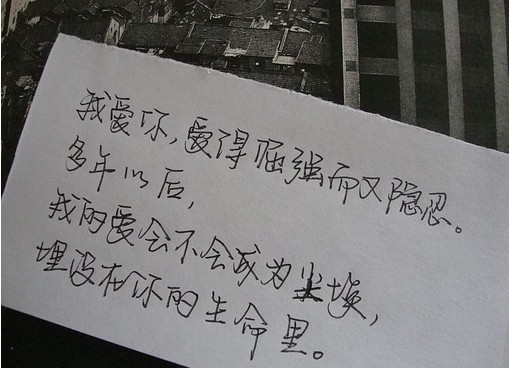 我爱你,爱得倔强而又隐忍。
多年以后,
我的爱会不会成为尘埃,
埋没在你的生命里。